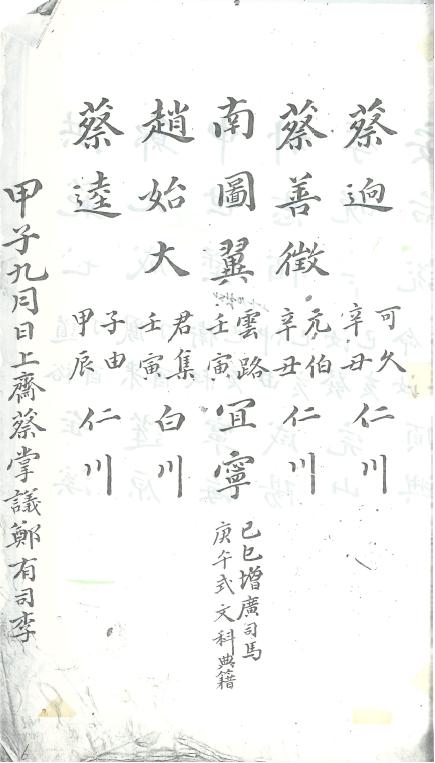 蔡逈 可久 辛丑 仁川
蔡善徵 元伯 辛丑 仁川
南圖翼 雲路 壬寅 宜寧 己巳增廣司馬 庚午式文科典籍
趙始大 君集 壬寅 白川
蔡逵 子由 甲辰 仁川
甲子九月日上齋蔡掌議鄭有司李